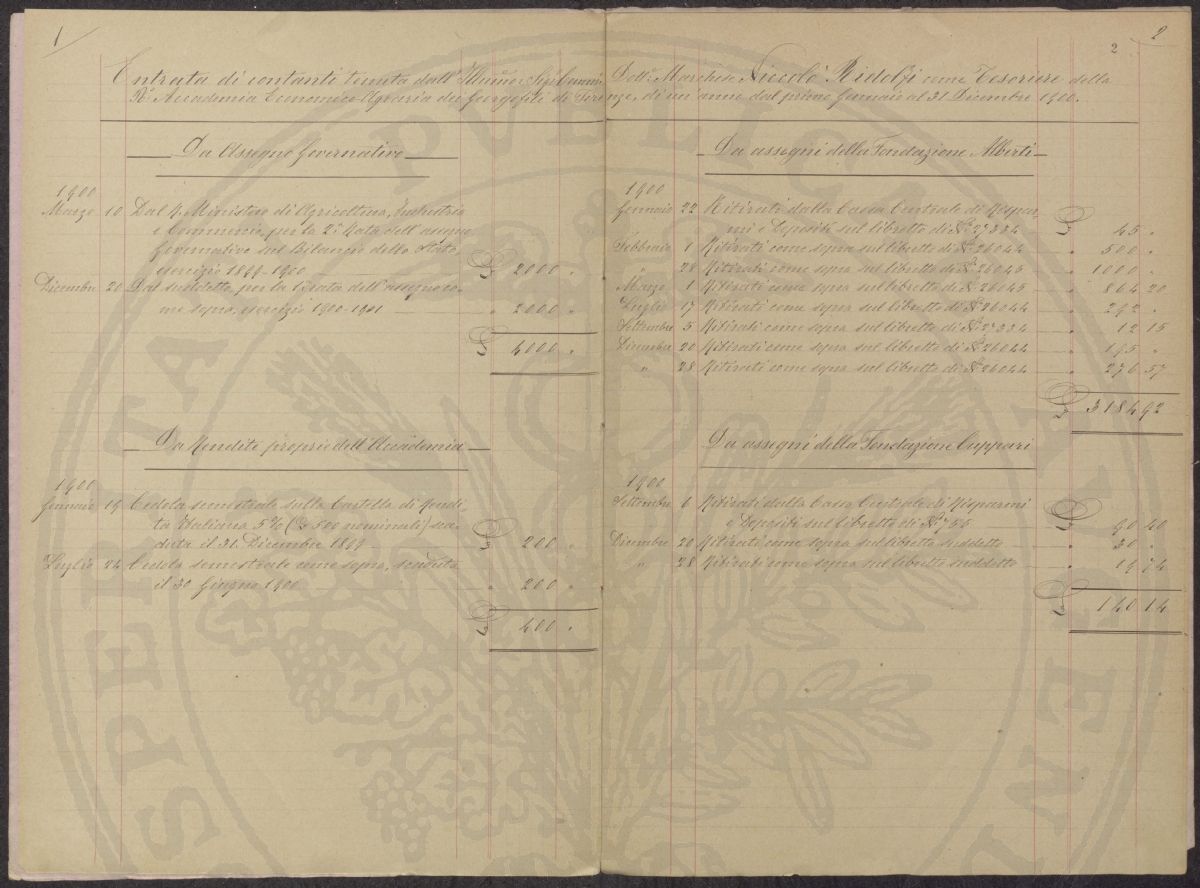 1
Entrata di contanti tenuta dall' Illmo Sig. Comm. Dott. Marchese Niccolò Ridolfi come Tesoriere della
R. Accademia Economico-Agraria dei Georgofili di Firenze, di un anno dal primo Gennaio al 31 Dicembre 1900.
Da Assegno Governativo
1900
Marzo 10 Dal R. Ministero di Agricoltura, Industria
e Commercio, per la 2a Rata dell' assegno
Governativo sul Bilancio dello Stato,
esercizio 1899-1900 £ 2000 "
Dicembre 20 Dal suddetto, per la 1a rata dell' assegno co-
me sopra, esercizio 1900-1901 " 2000 "
£ 4000 "
Da Rendite proprie dell' Accademia
1900
Gennaio 19 Cedola semestrale sulla Cartella di Rendi-
ta Italiana 5% (£ 500 nominali) sca-
duta il 31 Dicembre 1899 £ 200 "
Luglio 24 Cedola semestrale come sopra, scaduta
il 30 Giugno 1900 " 200 "
£ 400 "
2
2
Da assegni della Fondazione Alberti
1900
Gennaio 22 Ritirati dalla Cassa Centrale di Rispar-
mi e Depositi sul libretto di N° 27334 £ 45 "
Febbraio 1 Ritirati come sopra sul libretto di N° 26044 " 500 "
" 28 Ritirati come sopra sul libretto di N° 26045 " 1000 "
Marzo 1 Ritirati come sopra sul libretto di N° 26045 " 864 20
Luglio 17 Ritirati come sopra sul libretto di N° 26044 " 292 "
Settembre 5 Ritirati come sopra sul libretto di N° 27334 " 12 15
Dicembre 20 Ritirati come sopra sul libretto di N° 26044 " 195 "
" 28 Ritirati come sopra sul libretto di N° 26044 " 276 57
£ 3184 92
Da assegni della Fondazione Cuppari
1900
Settembre 6 Ritirati dalla Cassa Centrale di Risparmi
e Depositi sul libretto di N° 755 £ 90 40
Dicembre 20 Ritirati come sopra sul libretto suddetto " 30 "
" 28 Ritirati come sopra sul libretto suddetto " 19 74
£ 140 14